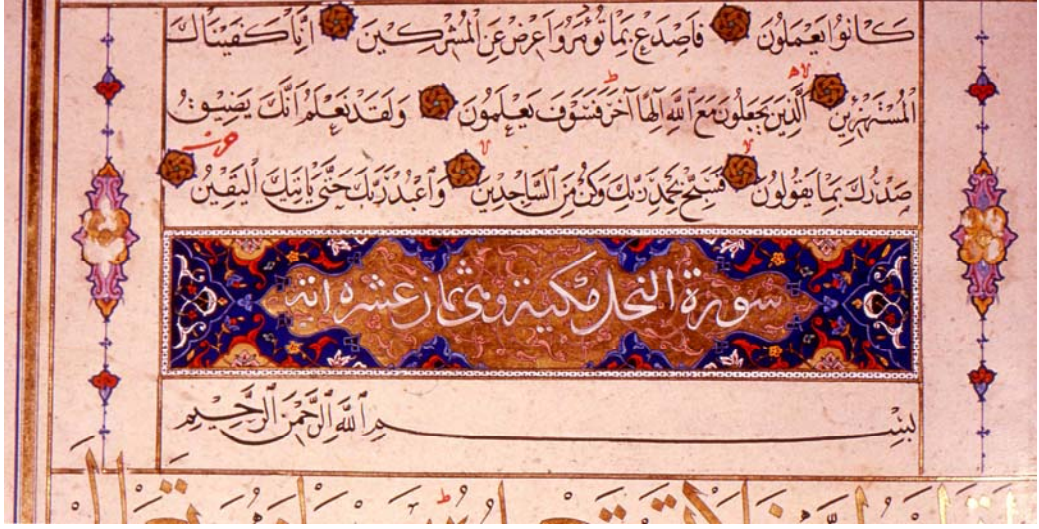 كَانُوا يَعْمَلُونَ فَاصْدَعْ بِمَا تُؤْمَرُ وَاَعْرِضْ عَنِ الْمُشْرِكِينَ اِنَّا كَفَيْنَاكَ
الْمُسْتَهْزِئِينَ اَلَّذِينَ يَجْعَلُونَ مَعَ اللَّهِ اِلٰهًا آخَرَ فَسَوْفَ يَعْلَمُونَ وَلَقَدْ نَعْلَمُ اَنَّكَ يَضِيقُ
صَدْرُكَ بِمَا يَقُولُونَ فَسَبِّحْ بِحَمْدِ رَبِّكَ وَكُنْ مِنَ السَّاجِدِينَ وَاعْبُدْ رَبَّكَ حَتَّى يَاْتِيَكَ الْيَقِينُ
سورة النحل مكية وهى ثمان عشره اية
بِسْمِ اللَّهِ الرَّحْمٰنِ الرَّحِيمِ